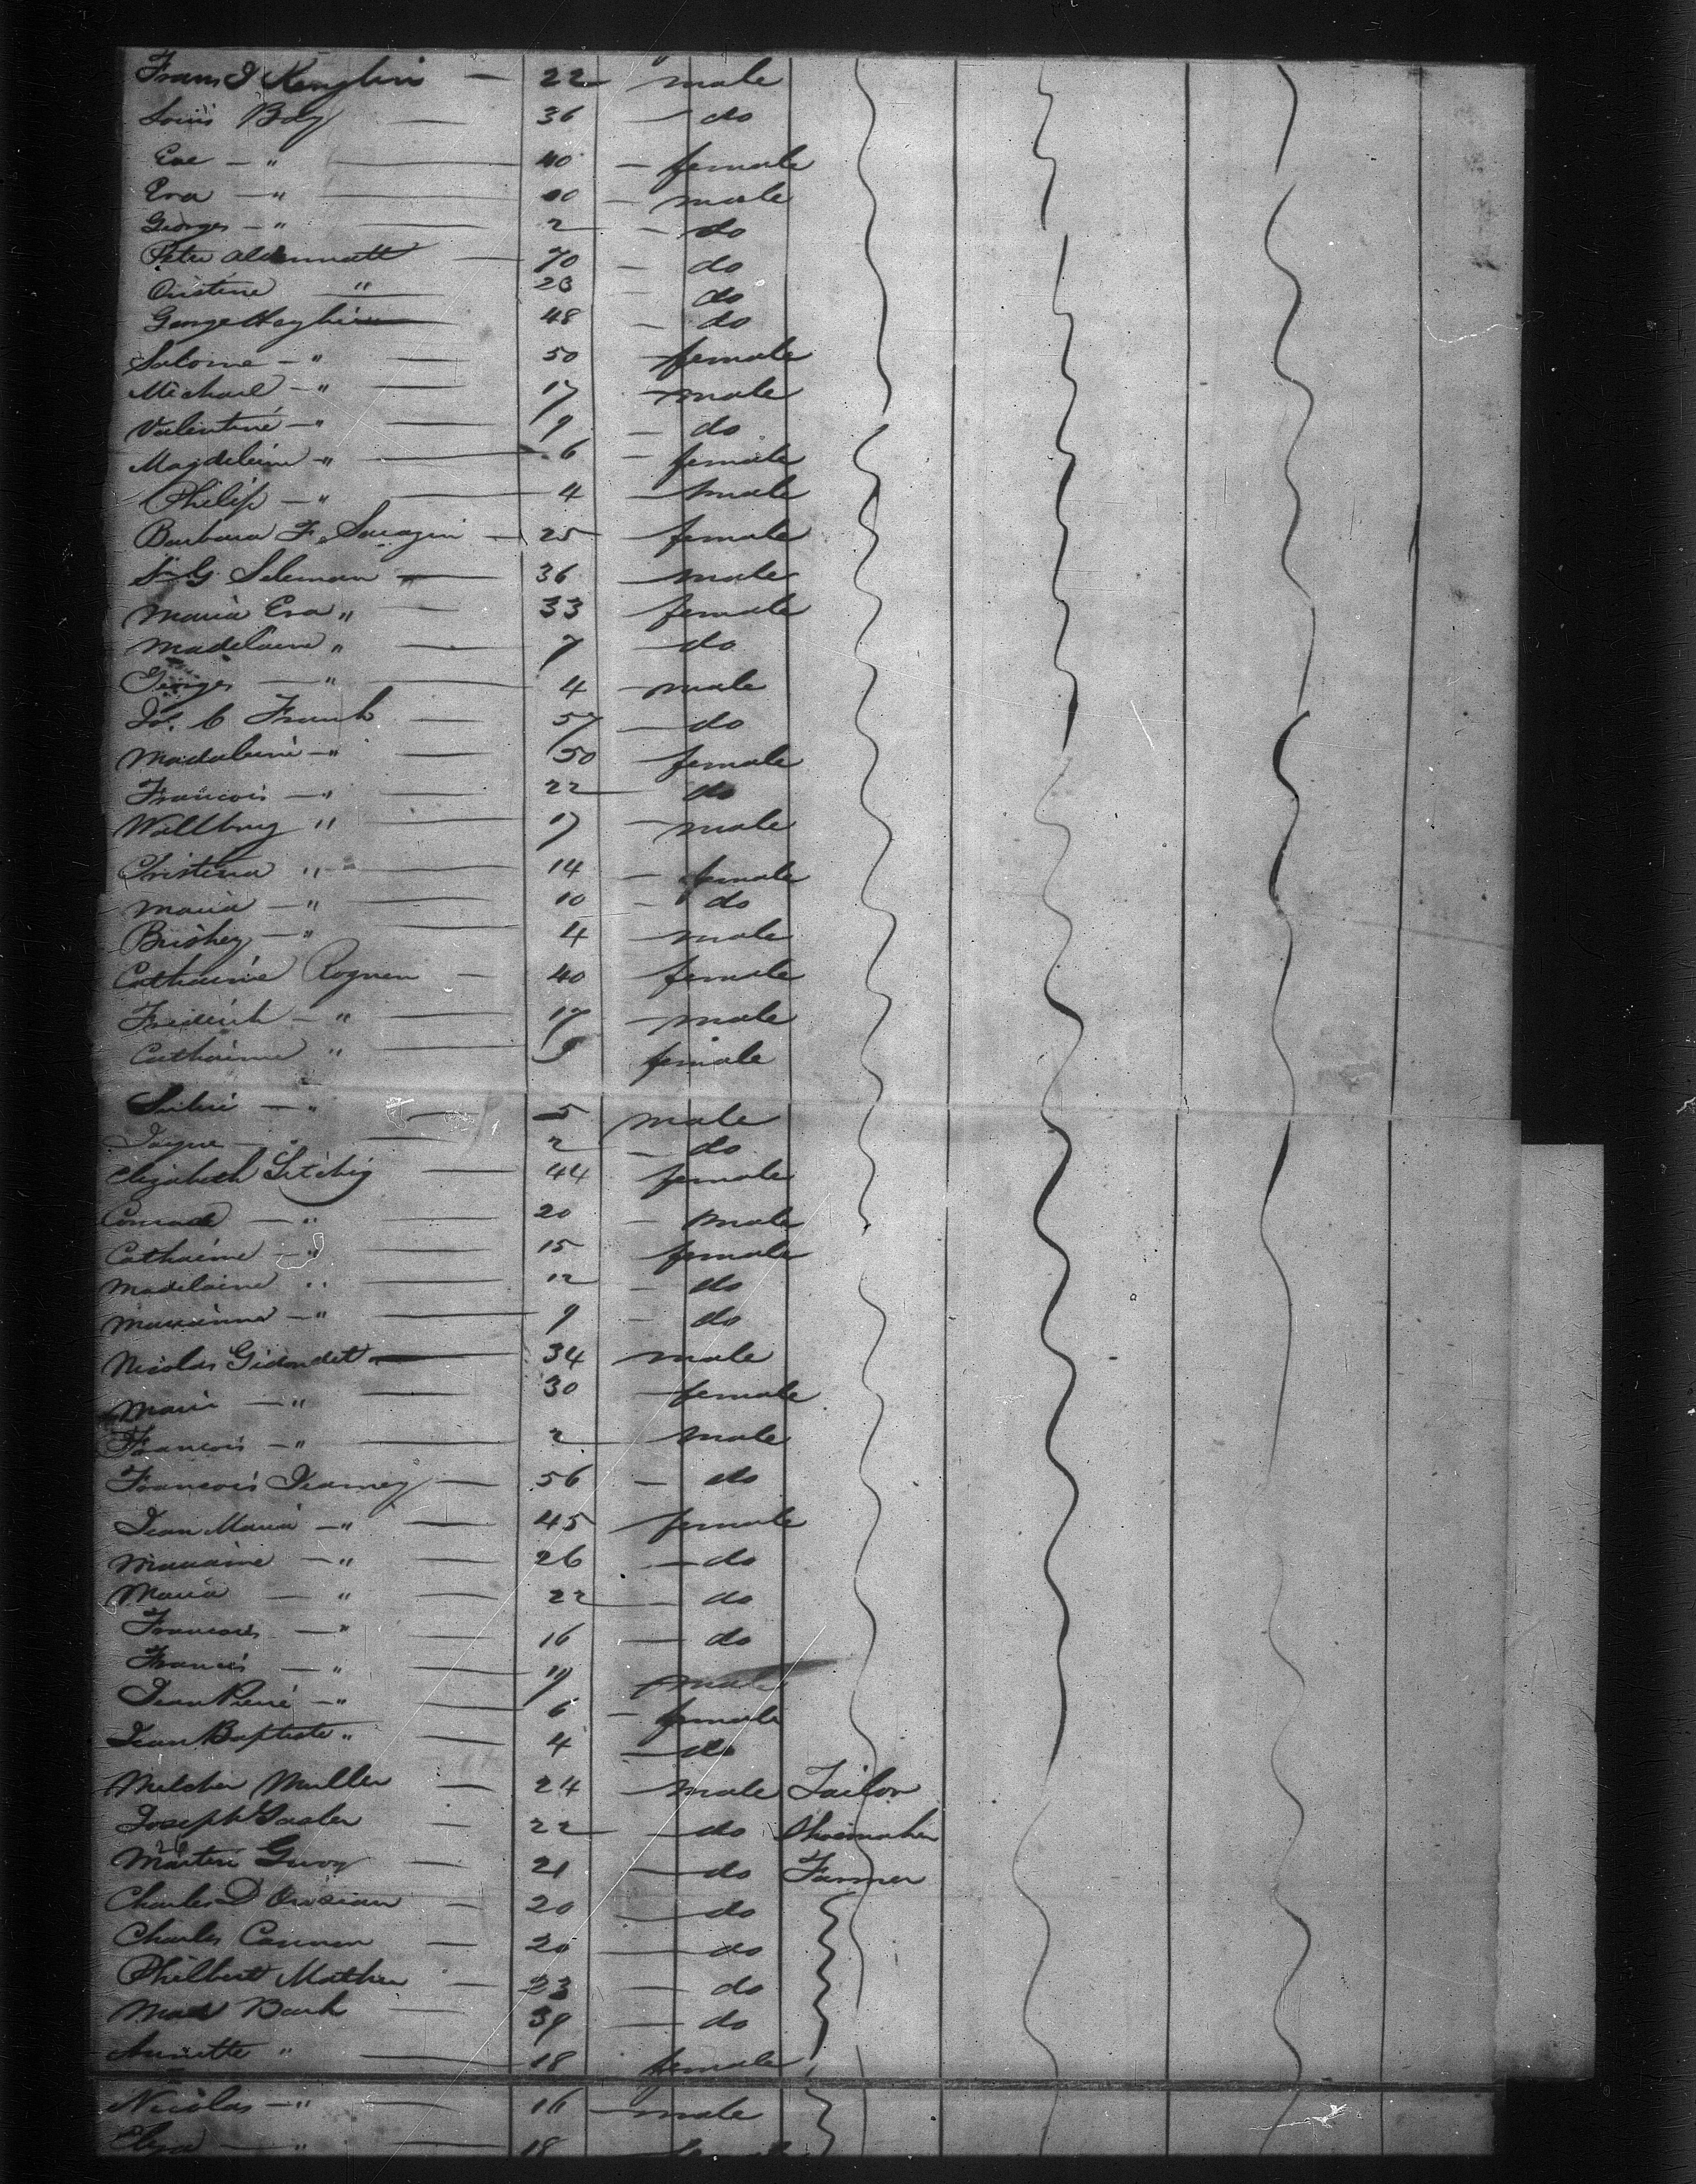 Frans J Kenglins — 22 male
Louis Boly — 36 — do
Eve — " — 40 — female
Eva — " — 10 — male
Georges — " 2 — do
Peter Aldenmatt — 70 — do
Cristine " — 23 — do
George Haghim 48 — do
Salome — " — 50 female
Michael — " — 17 male
Valentine — " — 9 — do
Magdeleine — " — 6 — female
Philip — " — 4 — male
Barbara F. Saragin — 25 — female
J. G. Seleman — 36 — male
Maria Eva " — 33 female
Madelaine " — 7 — do
Georges — " — 4 — male
Jos. C Frank — 57 — do
Madaleine — " — 50 female
Francois — " — 22 — do
Wallbrug " — 17 — male
Cristina " — 14 — female
Maria — " — 10 — do
Brishey — " — 4 — male
Catharine Rognen — 40 female
Frederick — " — 17 — male
Catharine " — 9 female
— " — 5 male
— " — 2 — do
Elizabeth Litchig — 44 — female
Conrade — " — 20 — male
Catharine — " — 15 female
Madelaine " — 12 — do
Marianna — " — 9 — do
Nicolas Gidondet — 34 male
Marie — " — 30 female
Francois — " — 2 male
Francois Jeamey — 56 — do
Jean Maria — " — 45 female
Mariaine — " — 26 — do
Maria — " — 22 — do
Francois — " — 16 — do
Francis — " — 19 male
Jean Pierre — " — 6 — female
Jean Baptiste " — 4 — do
Melcher Muller — 24 — male Tailor
Joseph Gasler — 22 — do Shoemaker
Martin Guroy — 21 — do Farmer
Charles D — 20 — do
Charles Cannon — 20 — do
Philbert Mather — 23 — do
Mad Bark — 39 — do
Annette " — 18 female
Nicolas — " — 16 — male
Eliza — " — 18 female